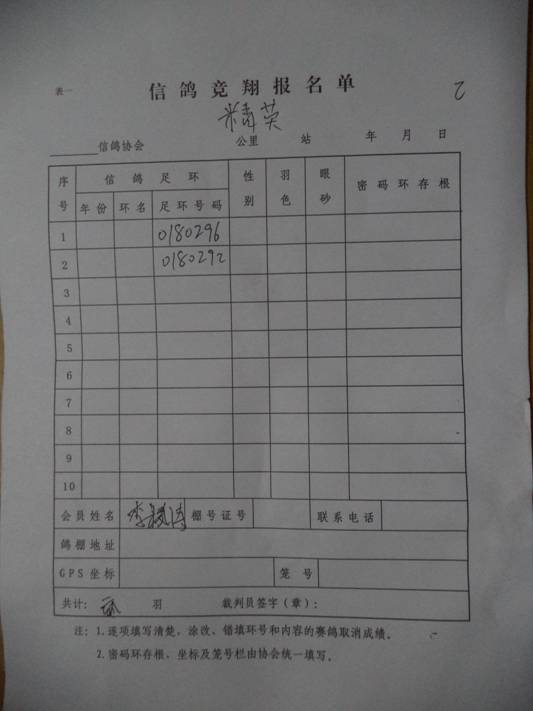 表一
信鸽竞翔报名单
乙
精英
信鸽协会 公里 站 年 月 日
序号 信鸽足环 性别 羽色 眼砂 密码环存根
年份 环名 足环号码
1 0180296
2 0180292
3
4
5
6
7
8
9
10
会员姓名 李 涛 棚号证号 联系电话
鸽棚地址
GPS坐标 笼号
共计: 贰 羽 裁判员签字(章):
注: 1.逐项填写清楚,涂改、错填环号和内容的赛鸽取消成绩。
2.密码环存根、坐标及笼号栏由协会统一填写。